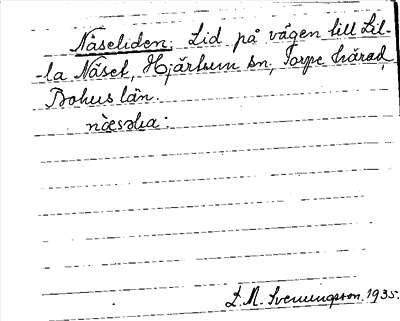 Näseliden: Lid på vägen till Lil-
-la Näset, Hjärtum sn, Torpe härad,
Bohus län.
L. M. Svenungsson. 1935.